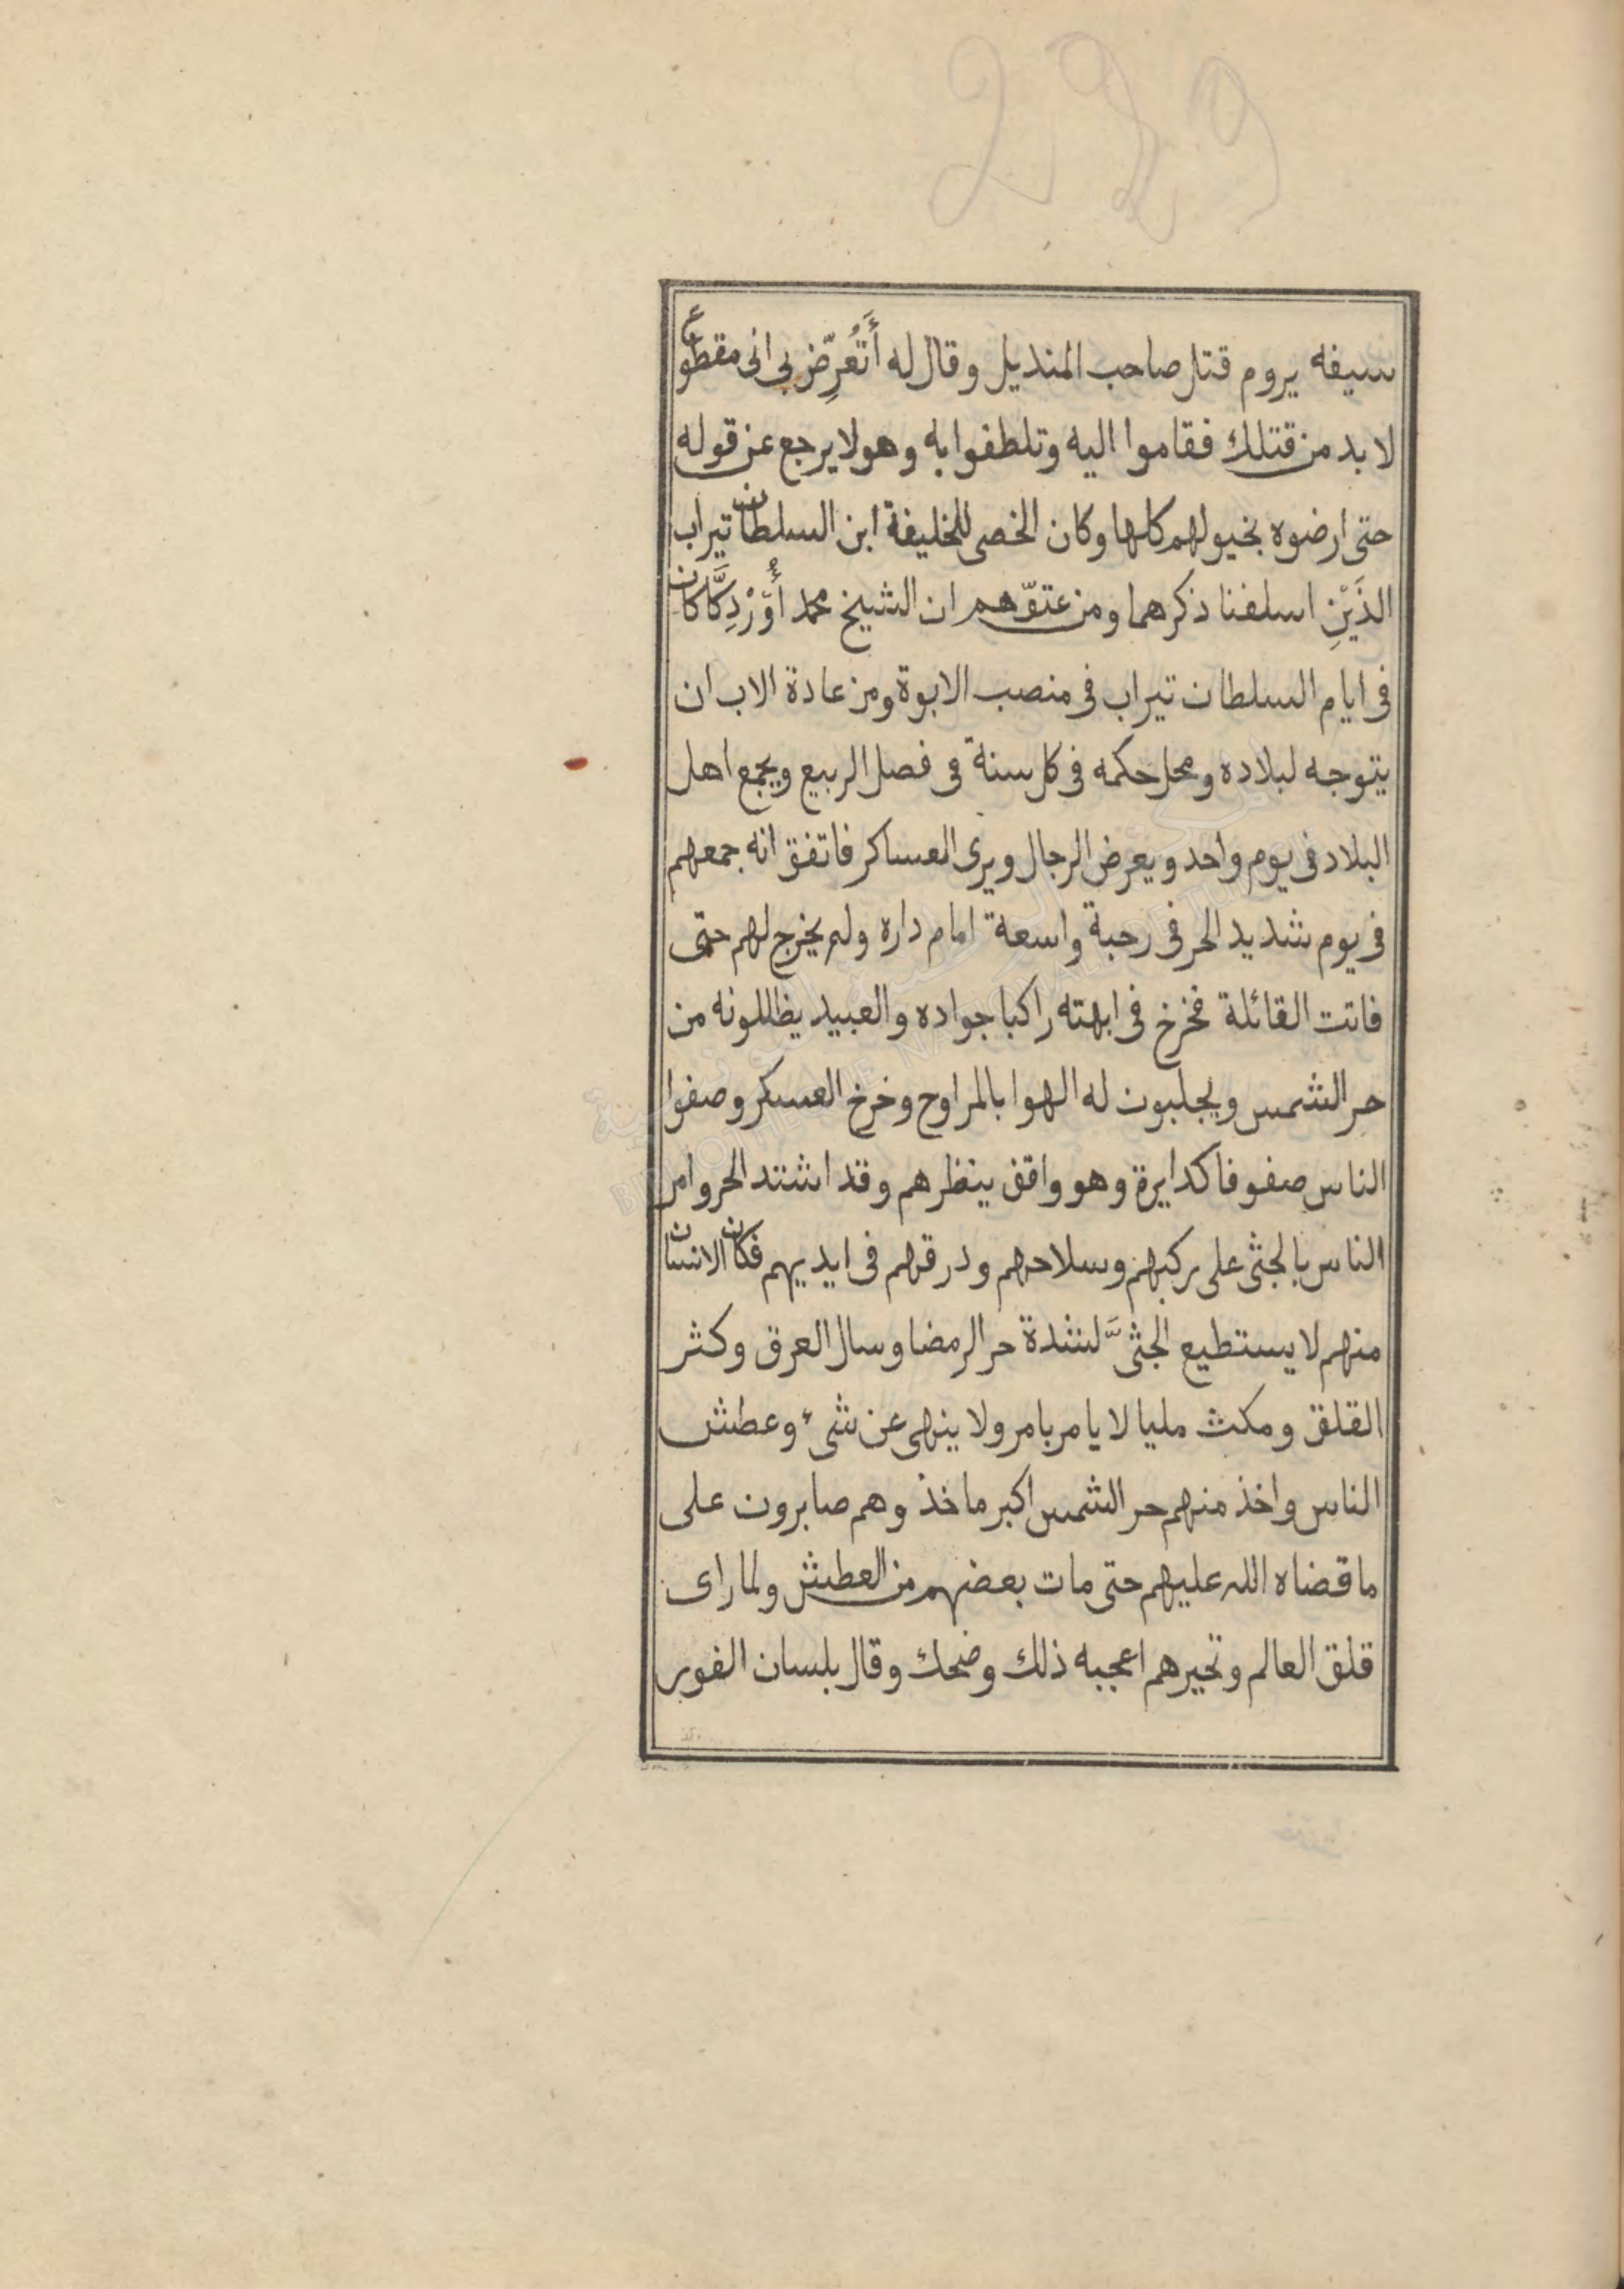 229
سيفه يروم قتل صاحب المنديل وقال له أَتُعرِّض بى انى مقطوع
لا بد من قتلك فقاموا اليه وتلطفوا به وهو لا يرجع عن قوله
حتى ارضوه بخيولهم كلها وكان الخصى للخليفة ابن السلطان تيراب
الذَيْنِ اسلفنا ذكرهما ومن عتوّهم ان الشيخ محمد أُوَّرْدِكَّا كان
فى ايام السلطان تيراب فى منصب الابوة ومن عادة الاب ان
يتوجه لبلاده ومحل حكمه فى كل سنة فى فصل الربيع ويجمع اهل
البلاد فى يوم واحد ويعرض الرجال ويرى العساكر فاتفق انه جمعهم
فى يوم شديد الحر فى رحبة واسعة امام داره ولم يخرج لهم حتى
فاتت القائلة فخرج فى ابهته راكبا جواده والعبيد يظللونه من
حر الشمس ويجلبون له الهوا بالمراوح وخرج العسكر وصفوا
الناس صفوفا كدايرة وهو واقف ينظرهم وقد اشتد الحر وامر
الناس بالجثى على ركبهم وسلاحهم ودرقهم فى ايديهم فكان الانسان
منهم لا يستطيع الجثىَّ لشدة حر الرمضا وسال العرق وكثر
القلق ومكث مليا لا يامر بامر ولا ينهى عن شىء وعطش
الناس واخذ منهم حر الشمس اكبر ماخذ وهم صابرون على
ما قضاه الله عليهم حتى مات بعضهم من العطش ولما راى
قلق العالم وتحيرهم اعجبه ذلك وضحك وقال بلسان الفور